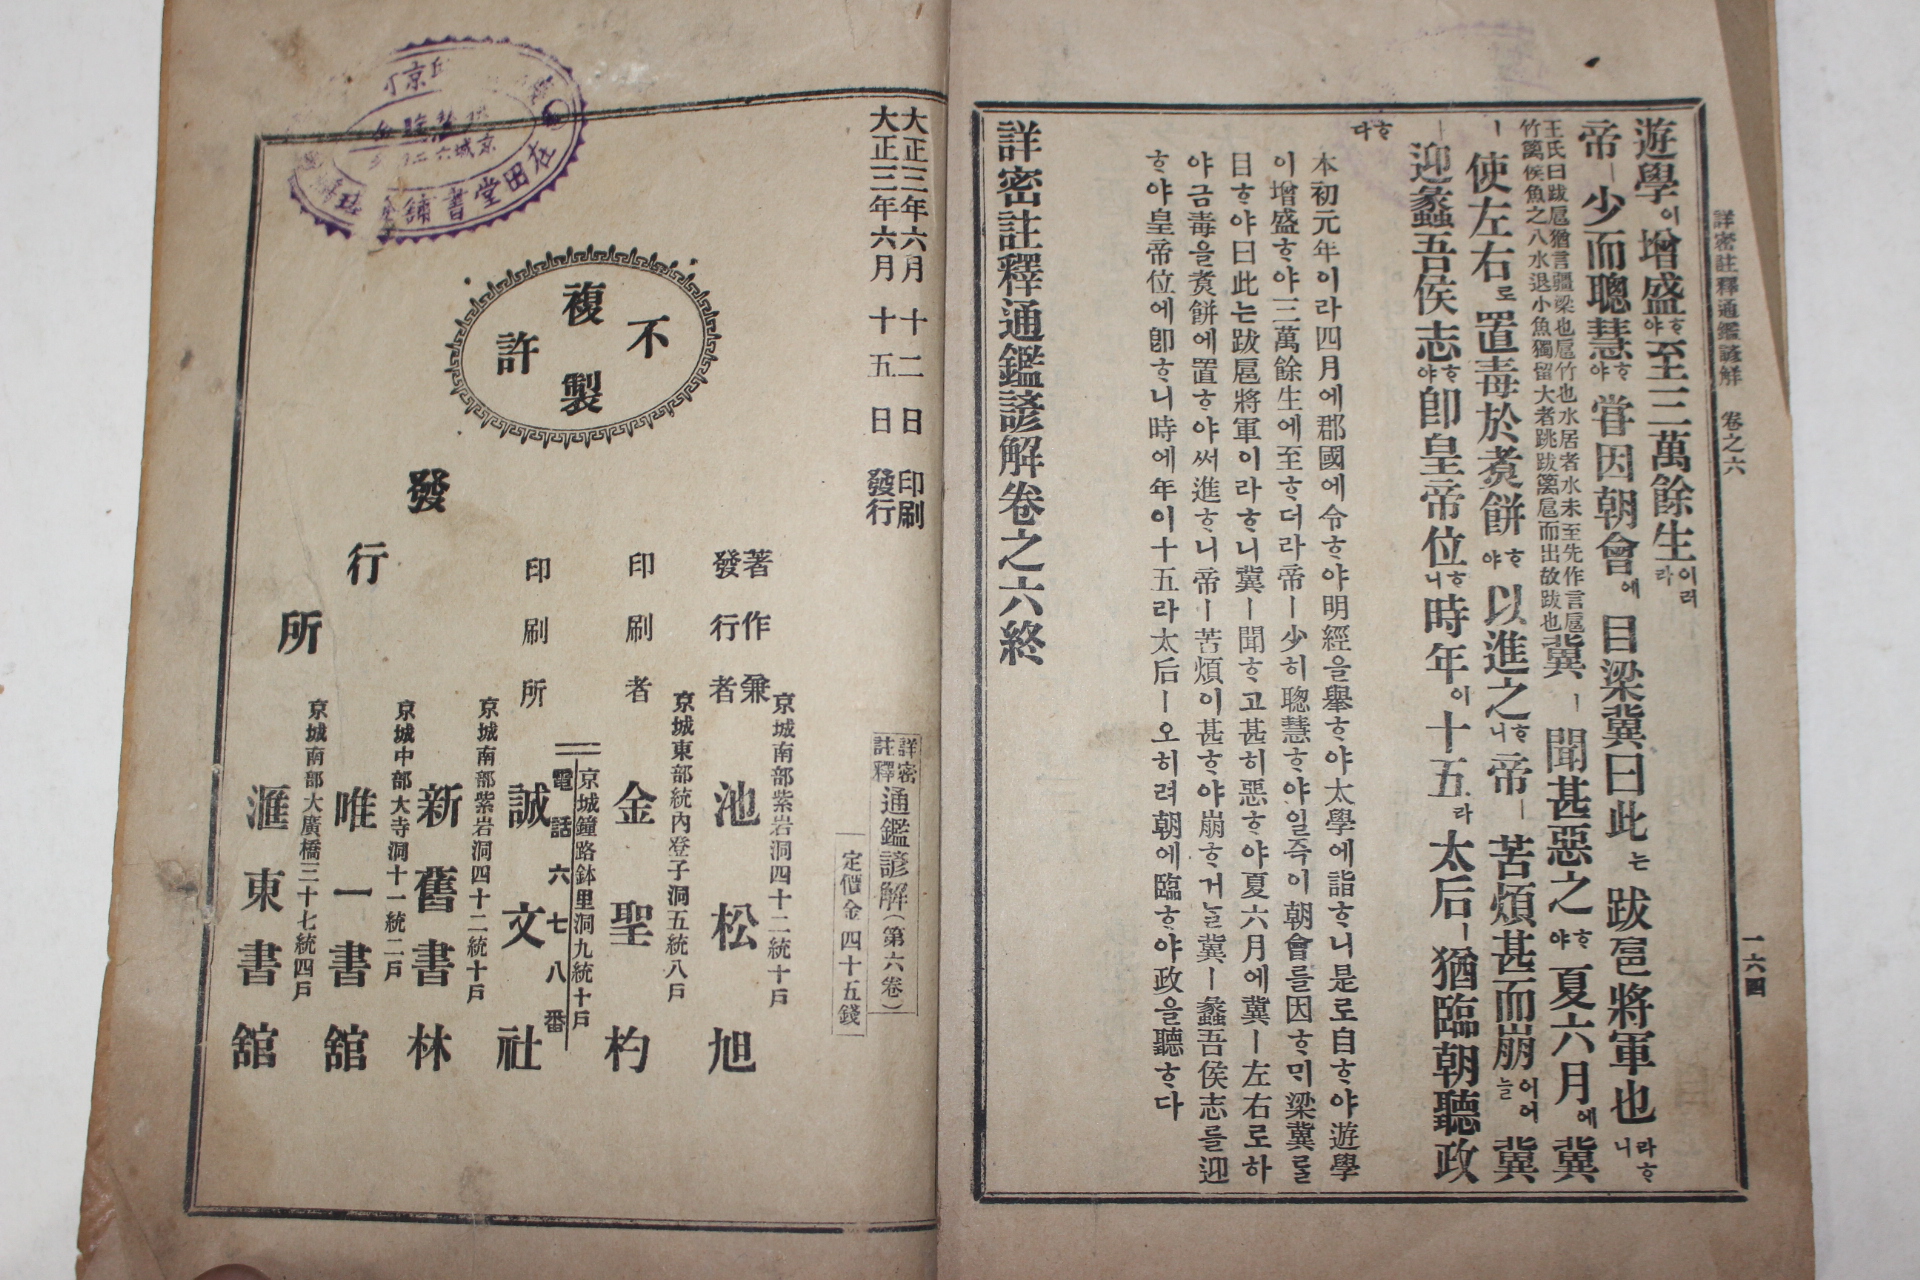 詳密註釋通鑑諺解 卷之六
一六四
遊學이增盛ᄒᆞ야至三萬餘生이러라
帝ㅣ少而聰慧ᄒᆞ야嘗因朝會에目梁冀曰此는跋扈將軍也라ᄒᆞ니
王氏曰跋扈猶言疆梁也扈竹也水居者水未至先作言扈
竹篱侯魚之入水退小魚獨留大者跳跋篱扈而出故跋也
冀ㅣ聞甚惡之ᄒᆞ야夏六月에冀
ㅣ使左右로置毒於煑餠ᄒᆞ야以進之ᄒᆞ니帝ㅣ苦煩甚而崩이어늘冀
ㅣ迎蠡吾侯志ᄒᆞ야卽皇帝位ᄒᆞ니時年이十五라太后ㅣ猶臨朝聽政
ᄒᆞ다
本初元年이라四月에郡國에令ᄒᆞ야明經을擧ᄒᆞ야太學에詣ᄒᆞ니是로自ᄒᆞ야遊學
이增盛ᄒᆞ야三萬餘生에至ᄒᆞ더라帝ㅣ少히聰慧ᄒᆞ야일즉이朝會를因ᄒᆞᄆᆡ梁冀를
目ᄒᆞ야曰此는跋扈將軍이라ᄒᆞ니冀ㅣ聞ᄒᆞ고甚히惡ᄒᆞ야夏六月에冀ㅣ左右로하
야금毒을煑餠에置ᄒᆞ야써進ᄒᆞ니帝ㅣ苦煩이甚ᄒᆞ야崩ᄒᆞ거늘冀ㅣ蠡吾侯志를迎
ᄒᆞ야皇帝位에卽ᄒᆞ니時에年이十五라太后ㅣ오히려朝에臨ᄒᆞ야政을聽ᄒᆞ다
詳密註釋通鑑諺解卷之六終
大正三年六月十二日印刷
大正三年六月十五日發行
詳密註釋通鑑諺解(第六卷)
定價金四十五錢
不許複製
京城南部紫岩洞四十二統十戶
著作兼發行者 池松旭
京城東部統內登子洞五統八戶
印刷者 金聖杓
京城鐘路鉢里洞九統十戶
電話六七八番
印刷所 誠文社
發行所
京城南部紫岩洞四十二統十戶
新舊書林
京城中部大寺洞十一統二戶
唯一書館
京城南部大廣橋三十七統四戶
滙東書館
在田堂書鋪